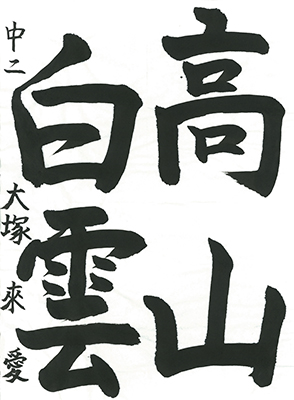 高山
白雲
中二 大塚來愛